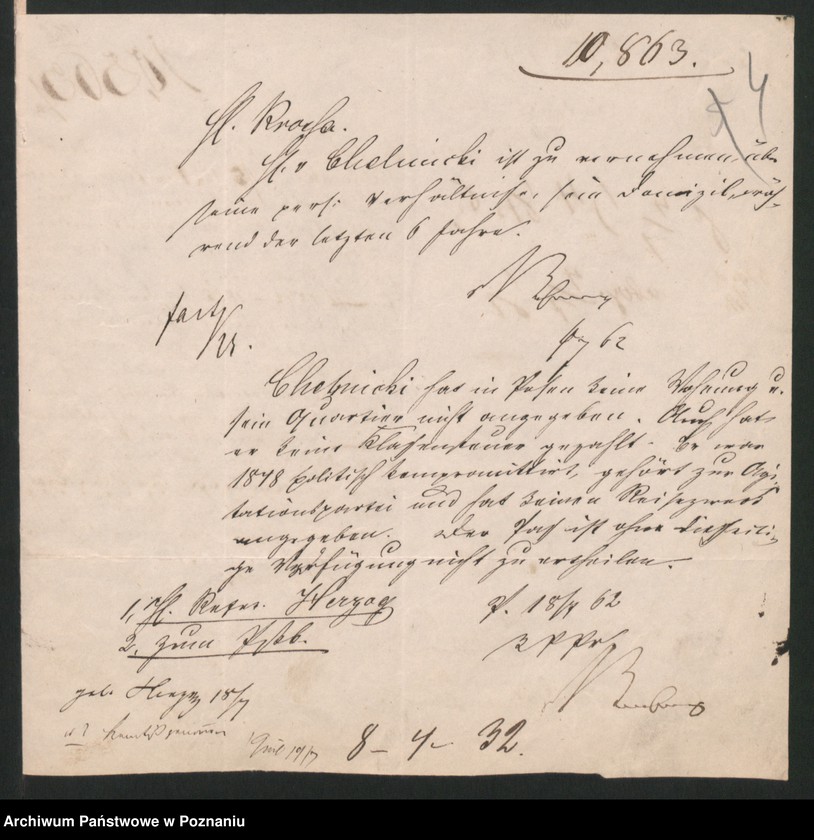 10,863.
4
H. Krocha.
H. v Chelmicki ist zu vernehmen, über
seine pers. Verhältnisse, sein Domizil, wäh-
rend der letzten 6 Jahre.
62
Chelmicki hat in Posen keine Wohnung u.
sein Quartier nicht angegeben. Auch hat
er keine Klassensteuer gezahlt. Er war
1848 politisch kompromittirt, gehört zur Agi-
tationspartei und hat keinen Reisezweck
angegeben. Der Paß ist ohne diesseiti-
ge Verfügung nicht zu ertheilen.
1, H. Refer. Herzog
P. 18/7 62
2, zum
gel. Herzog 18/7
8 – 4 – 32.
Archiwum Państwowe w Poznaniu